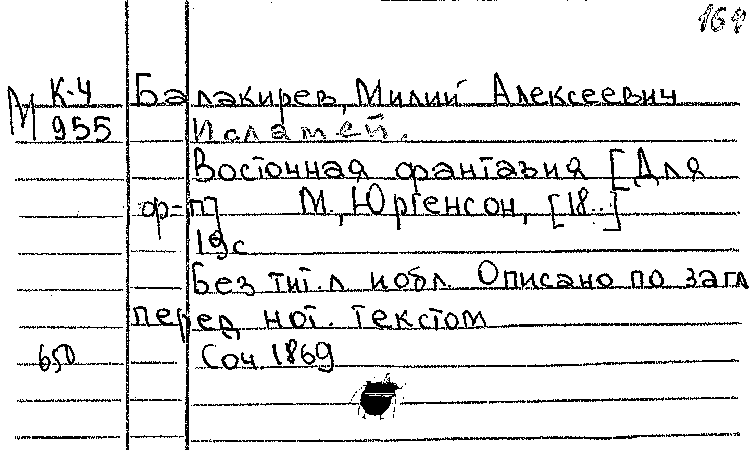 169
М К-4 Балакирев, Милий Алексеевич
955 Исламей.
Восточная фантазия [Для
ф-п] М., Юргенсон, [18..]
19с
Без тит. л и обл. Описано по загл
перед нот. текстом
650 Соч. 1869